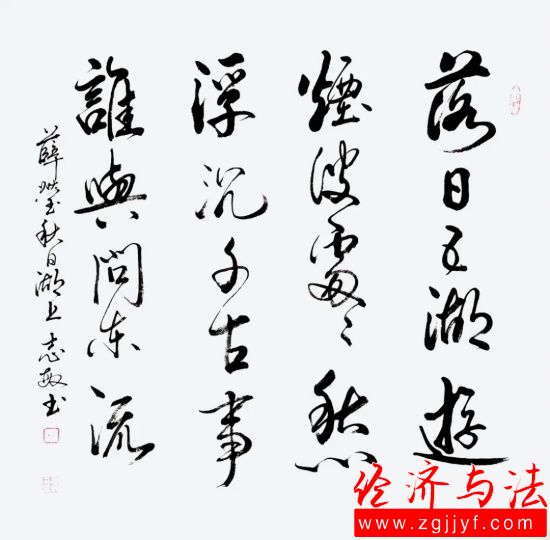 落日五湖遊
煙波處々愁
浮沉千古事
誰與問东流
薛瑩秋日湖上 志敏书
经济与法
www.zgjjyf.com